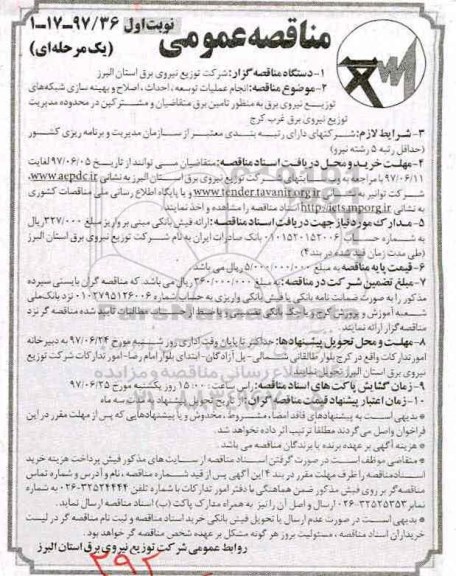 مناقصه عمومی
نوبت اول ۹۷/۳۶-۱۷-۱
(یک مرحله‌ای)
۱-دستگاه مناقصه گزار: شرکت توزیع نیروی برق استان البرز
۲-موضوع مناقصه: انجام عملیات توسعه، احداث، اصلاح و بهینه سازی شبکه‌های
توزیع نیروی برق به منظور تامین برق متقاضیان و مشترکین در محدوده مدیریت
توزیع نیروی برق غرب کرج
۳-شرایط لازم: شرکتهای دارای رتبه بندی معتبر از سازمان مدیریت و برنامه ریزی کشور
(حداقل رتبه ۵ رشته نیرو)
۴-مهلت خرید و محل دریافت اسناد مناقصه: متقاضیان می توانند از تاریخ ۹۷/۰۶/۰۵ لغایت
۹۷/۰۶/۱۱ با مراجعه به وب سایتهای شرکت توزیع نیروی برق استان البرز به نشانی www.aepdc.ir،
شرکت توانیر به www.tender.tavanir.org.ir و یا پایگاه اطلاع رسانی ملی مناقصات کشوری
به نشانی http://iets.mporg.ir اسناد مناقصه را مشاهده و اخذ نمایند
۵-مدارک مورد نیاز جهت دریافت اسناد مناقصه: ارائه فیش بانکی مبنی بر واریز مبلغ ۳۲۷/۰۰۰ ریال
به شماره حساب ۰۱۰۱۵۲۰۱۵۲۰۰۶ بانک صادرات ایران به نام شرکت توزیع نیروی برق استان البرز
(طی مدت زمان قید شده در بند ۴)
۶-قیمت پایه مناقصه به مبلغ ۵/۰۰۰/۰۰۰/۰۰۰ ریال می باشد.
۷-مبلغ تضمین شرکت در مناقصه: به مبلغ ۲۶۰/۰۰۰/۰۰۰ ریال می باشد. که مناقصه گران بایستی سپرده
مذکور را به صورت ضمانت نامه بانکی یا فیش بانکی واریزی به حساب شماره ۰۱۰۲۷۹۵۱۲۶۰۰۶ نزد بانک ملی
شعبه آموزش و پرورش کرج و یا چک بانکی و یا مطالبات تائید شده مناقصه گر نزد
مناقصه گزار ارائه نمایند.
۸-مهلت و محل تحویل پیشنهادها: حداکثر تا پایان وقت اداری روز شنبه مورخ ۹۷/۰۶/۲۴ به دبیرخانه
امور تدارکات واقع در کرج بلوار طالقانی شمالی-پل آزادگان-ابتدای بلوار امام رضا-امور تدارکات شرکت توزیع
نیروی برق استان البرز تحویل نمایند.
۹-زمان گشایش پاکت های اسناد مناقصه: راس ساعت ۱۵:۰۰ روز یکشنبه مورخ ۹۷/۰۶/۲۵
۱۰-زمان اعتبار پیشنهاد قیمت مناقصه گران: از تاریخ تحویل پیشنهاد به مدت سه ماه
* بدیهی است به پیشنهادهای فاقد امضاء، مشروط، مخدوش و یا پیشنهادهایی که پس از مهلت مقرر در این
فراخوان واصل می گردند مطلقا ترتیب اثر داده نخواهد شد.
* هزینه آگهی بر عهده برنده یا برندگان مناقصه می باشد.
* متقاضی موظف است در صورت گرفتن اسناد مناقصه از سایت های مذکور فیش پرداخت هزینه خرید
اسناد مناقصه را ظرف مهلت مقرر در بند ۴ این آگهی پس از قید شماره مناقصه، نام و آدرس و شماره تماس
مناقصه گر بر روی فیش مذکور ضمن هماهنگی با دفتر امور تدارکات با شماره تلفن ۳۲۵۲۴۴۴۴-۰۲۶ به شماره
نمابر ۳۲۵۲۵۳۵۳-۰۲۶ ارسال و اصل آن را نیز به همراه مدارک پاکت (ب) اسناد مناقصه ارسال نماید.
* بدیهی است در صورت عدم ارسال یا تحویل فیش بانکی خرید اسناد مناقصه و ثبت نام مناقصه گر در لیست
خریداران اسناد مناقصه، مسئولیت بروز هر گونه مشکل بر عهده شخص مناقصه گر خواهد بود.
روابط عمومی شرکت توزیع نیروی برق استان البرز
۲۹۲